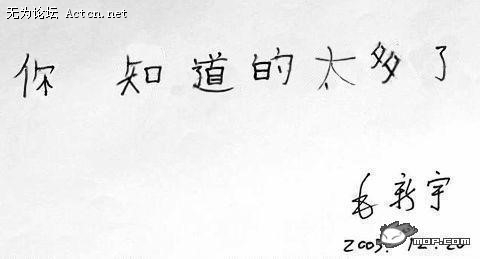 无为论坛 Actcn.net
你 知道的太多了
毛新宇
2003. 12. 20
MOP.COM